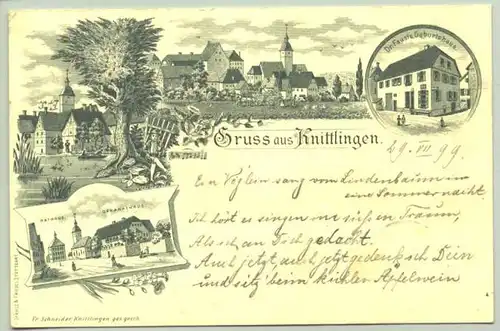 Dr. Fausts Geburtshaus.
Gruss aus Knittlingen.
29. VII 99
Ein Vöglein sang vom Lindenbaum in
eine Sommernacht
Ich hört es singen im süßen Traum,
Als ich an Dich gedacht.
Auch jetzt, auch jetzt gedenk ich Dein
und sitz beim kühlen Apfelwein
RATHAUS
Fr. Schneider Knittlingen ges. gesch.